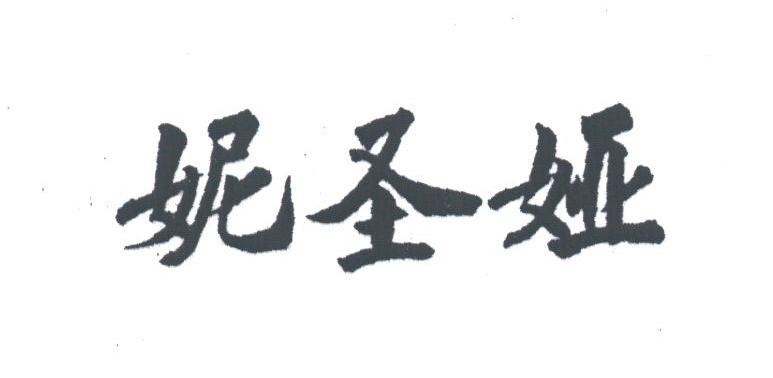 妮圣娅